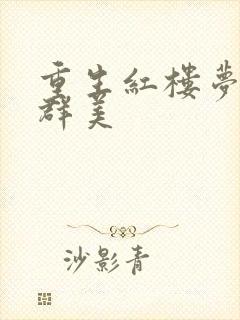 重生紅樓夢
群美
沙影青